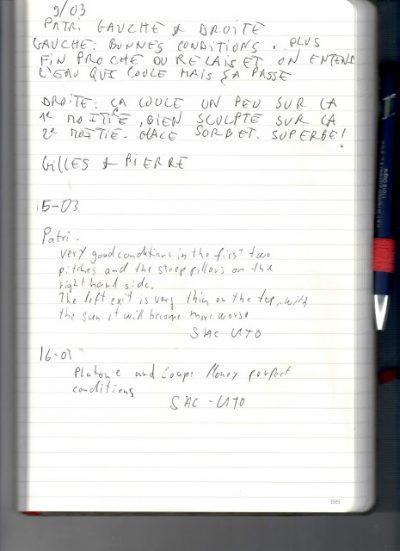 9/03
PATRI GAUCHE & DROITE
GAUCHE: BONNES CONDITIONS. PLUS
FIN PROCHE DU RELAIS ET ON ENTEND
L'EAU QUI COULE MAIS ÇA PASSE
DROITE: ÇA COULE UN PEU SUR LA
1e MOITIÉ, BIEN SCULPTÉ SUR LA
2e MOITIÉ. GLACE SORBET. SUPERBE!
GILLES & PIERRE
15-03
Patri.
Very good conditions in the first two
pitches and the steep pillows on the
right hand side.
The left exit is very thin on the top, with
the sun it will become more worse
SAC UTO
16-03
Platone and Coupe Money perfect
conditions
SAC-UTO